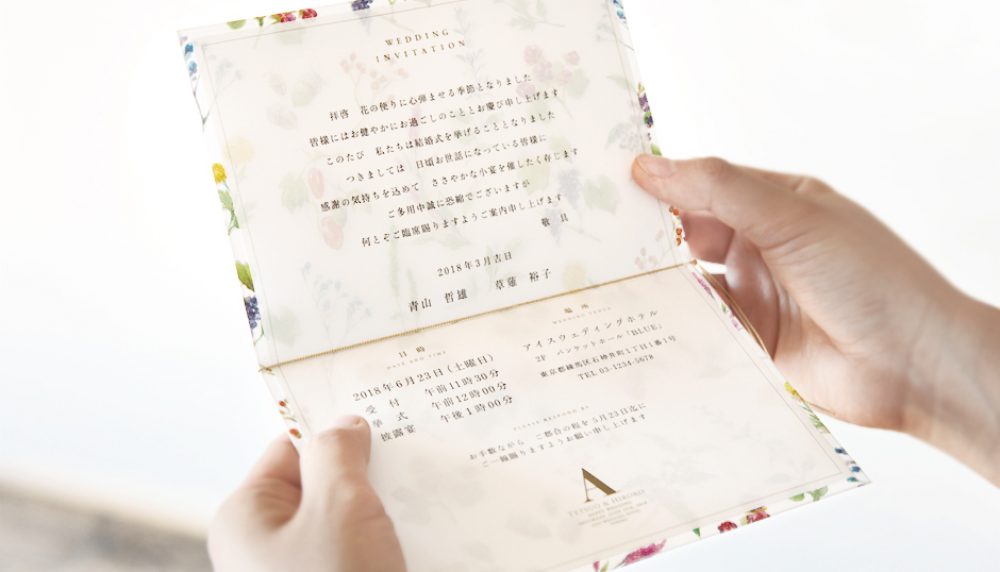 WEDDING
INVITATION
拝啓　花の便りに心弾ませる季節となりました
皆様にはお健やかにお過ごしのこととお慶び申し上げます
このたび　私たちは結婚式を挙げることとなりました
つきましては　日頃お世話になっている皆様に
感謝の気持ちを込めて　ささやかな小宴を催したく存じます
ご多用中誠に恐縮でございますが
何とぞご臨席賜りますようご案内申し上げます
敬　具
2018年3月吉日
青山　哲雄　　草薙　裕子
日　時
DATE AND TIME
2018年6月23日（土曜日）
受　付　午前11時30分
挙　式　午前12時00分
披露宴　午後1時00分
場　所
WEDDING VENUE
アイスウェディングホテル
2F　バンケットホール「BLUE」
東京都練馬区石神井町1丁目1番1号
TEL 03-1234-5678
PLEASE RESPOND BY
お手数ながら　ご都合の程を5月23日迄に
ご一報賜りますようお願い申し上げます
A
TETSUO & HIROKO